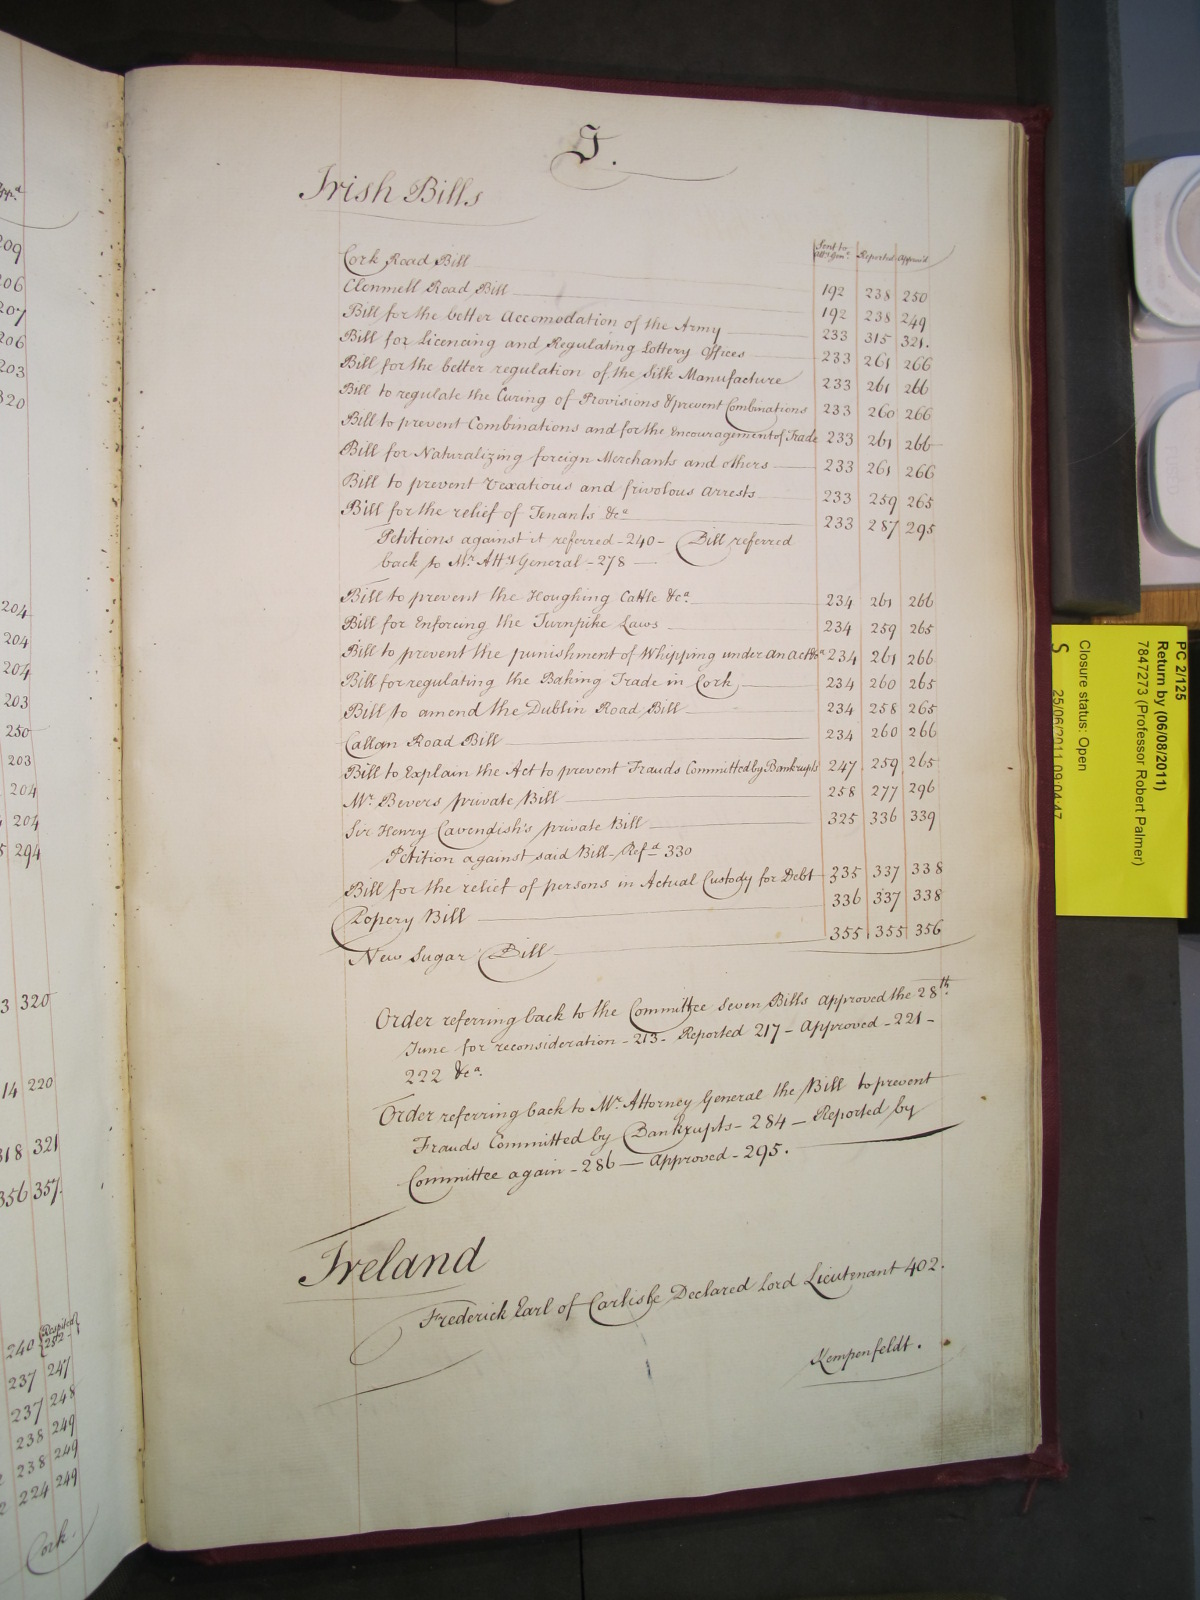 I.
Irish Bills
Sent to Att.y Gen.l Reported Approv'd
Cork Road Bill 192 238 250
Clonmell Road Bill 192 238 249
Bill for the better Accomodation of the Army 233 315 321.
Bill for Licencing and Regulating Lottery Offices 233 261 266
Bill for the better regulation of the Silk Manufacture 233 261 266
Bill to regulate the Curing of Provisions & prevent Combinations 233 260 266
Bill to prevent Combinations and for the Encouragement of Trade 233 261 266
Bill for Naturalizing foreign Merchants and others 233 261 266
Bill to prevent Vexatious and frivolous Arrests 233 259 265
Bill for the relief of Tenants &c.a 233 287 295
Petitions against it referred - 240 - Bill referred
back to Mr. Att.y General - 278
Bill to prevent the Houghing Cattle &c.a 234 261 266
Bill for Enforcing the Turnpike Laws 234 259 265
Bill to prevent the punishment of Whipping under an Act &c.a 234 261 266
Bill for regulating the Baking Trade in Cork 234 260 265
Bill to amend the Dublin Road Bill 234 258 265
Callan Road Bill 234 260 266
Bill to Explain the Act to prevent Frauds Committed by Bankrupts 247 259 265
Mr. Bevers private Bill 258 277 296
Sir Henry Cavendish's private Bill 325 336 339
Petition against said Bill - Ref.d 330
Bill for the relief of persons in Actual Custody for Debt 335 337 338
Popery Bill 336 337 338
New Sugar Bill 355 355 356
Order referring back to the Committee seven Bills approved the 28th.
June for reconsideration - 213 - Reported 217 - Approved - 221 -
222 &c.a
Order referring back to Mr. Attorney General the Bill to prevent
Frauds Committed by Bankrupts - 284 - Reported by
Committee again - 286 - Approved - 295.
Ireland
Frederick Earl of Carlisle Declared Lord Lieutenant 402.
Kempenfeldt.
209
206
207
206
203
320
204
204
204
203
250
203
204
204
294
3 320
14 220
318 321
356 357.
240 Respited 252
237 247
237 248
238 249
238 249
224 249
Cork.
PC 2/125
Return by (06/08/2011)
7847273 (Professor Robert Palmer)
Closure status: Open
S
25/06/2011 09:04:47